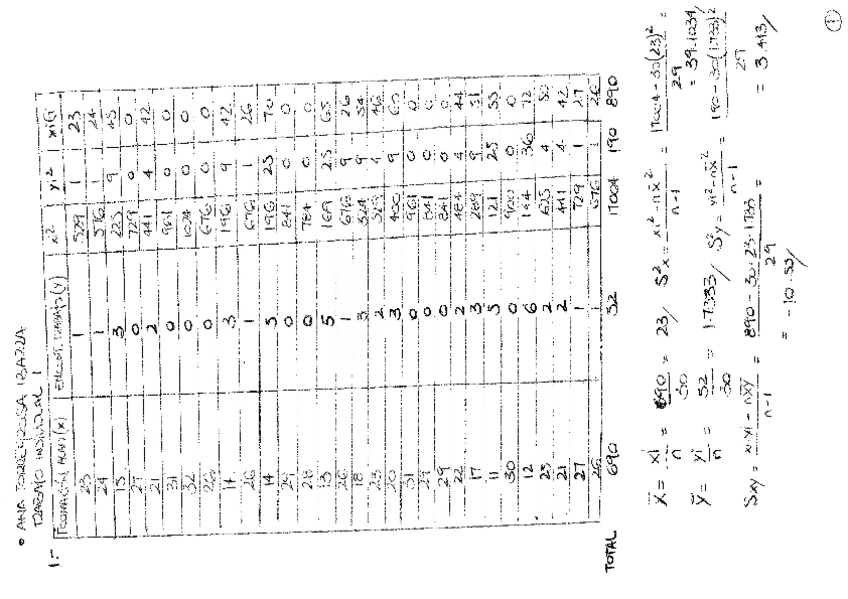 • ANA TORREQUEGSA IBAZZA
TRABAJO INDIVIDUAL 1
1.-
FORMACIÓN ACAD (X) ENCONT. TRABAJO (Y) x² yi² xiyi
23 1 529 1 23
24 1 576 1 24
15 3 225 9 45
27 0 729 0 0
21 2 441 4 42
31 0 961 0 0
32 0 1024 0 0
26 0 676 0 0
14 3 196 9 42
26 1 676 1 26
14 5 196 25 70
29 0 841 0 0
28 0 784 0 0
13 5 169 25 65
26 1 676 9 26
18 3 324 9 54
23 2 529 4 46
20 3 400 9 60
31 0 961 0 0
29 0 841 0 0
29 0 841 0 0
22 2 484 4 44
17 3 289 9 51
11 5 121 25 55
30 0 900 0 0
12 6 144 36 72
25 2 625 4 50
21 2 441 4 42
27 1 729 1 27
26 1 676 1 26
TOTAL 690 52 17004 190 890
x̄ = xi / n = 690 / 30 = 23/ S²x = xi² - nx̄² / n-1 = 17004 - 30(23)² / 29 = 39.1034/
ȳ = yi / n = 52 / 30 = 1.7333/ S²y = yi² - nx̄² / n-1 = 190 - 30(1.733)² / 29 = 3.443/
Sxy = xi·yi - nx̄ȳ / n-1 = 890 - 30·23·1.733 / 29 =
= -10.55/
1